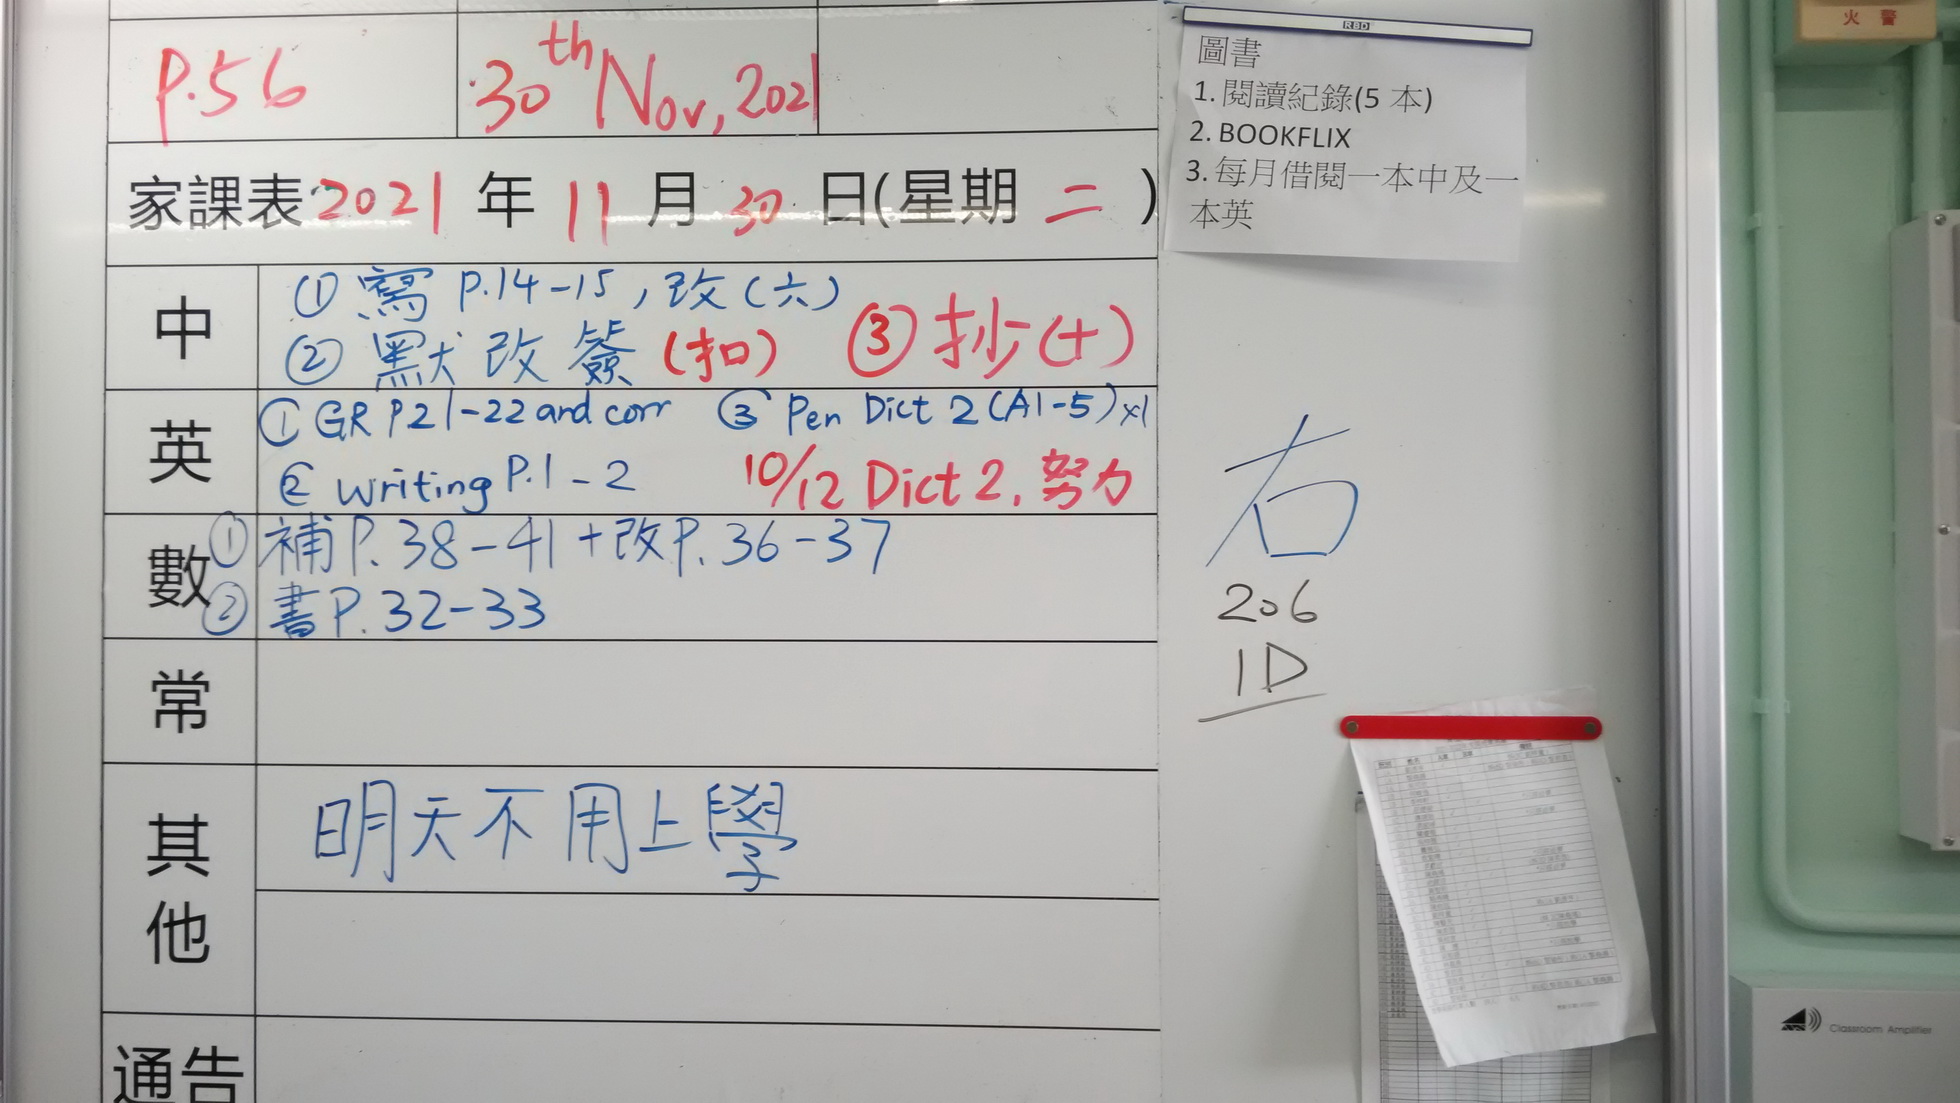 P.56
30th Nov, 2021
家課表 2021 年 11 月 30 日(星期 二 )
中
① 寫 P.14-15, 改(六)
② 默改簽 (扣) ③ 抄(十)
英
① GR P.21-22 and corr ③ Pen Dict 2 (A1-5)x1
② Writing P.1-2 10/12 Dict 2, 努力
數
① 補P.38-41+改P.36-37
② 書P.32-33
常
其他
明天不用上學
通告
RBD
圖書
1. 閱讀紀錄(5 本)
2. BOOKFLIX
3. 每月借閱一本中及一
本英
右
206
1D
火 警
Classroom Amplifier